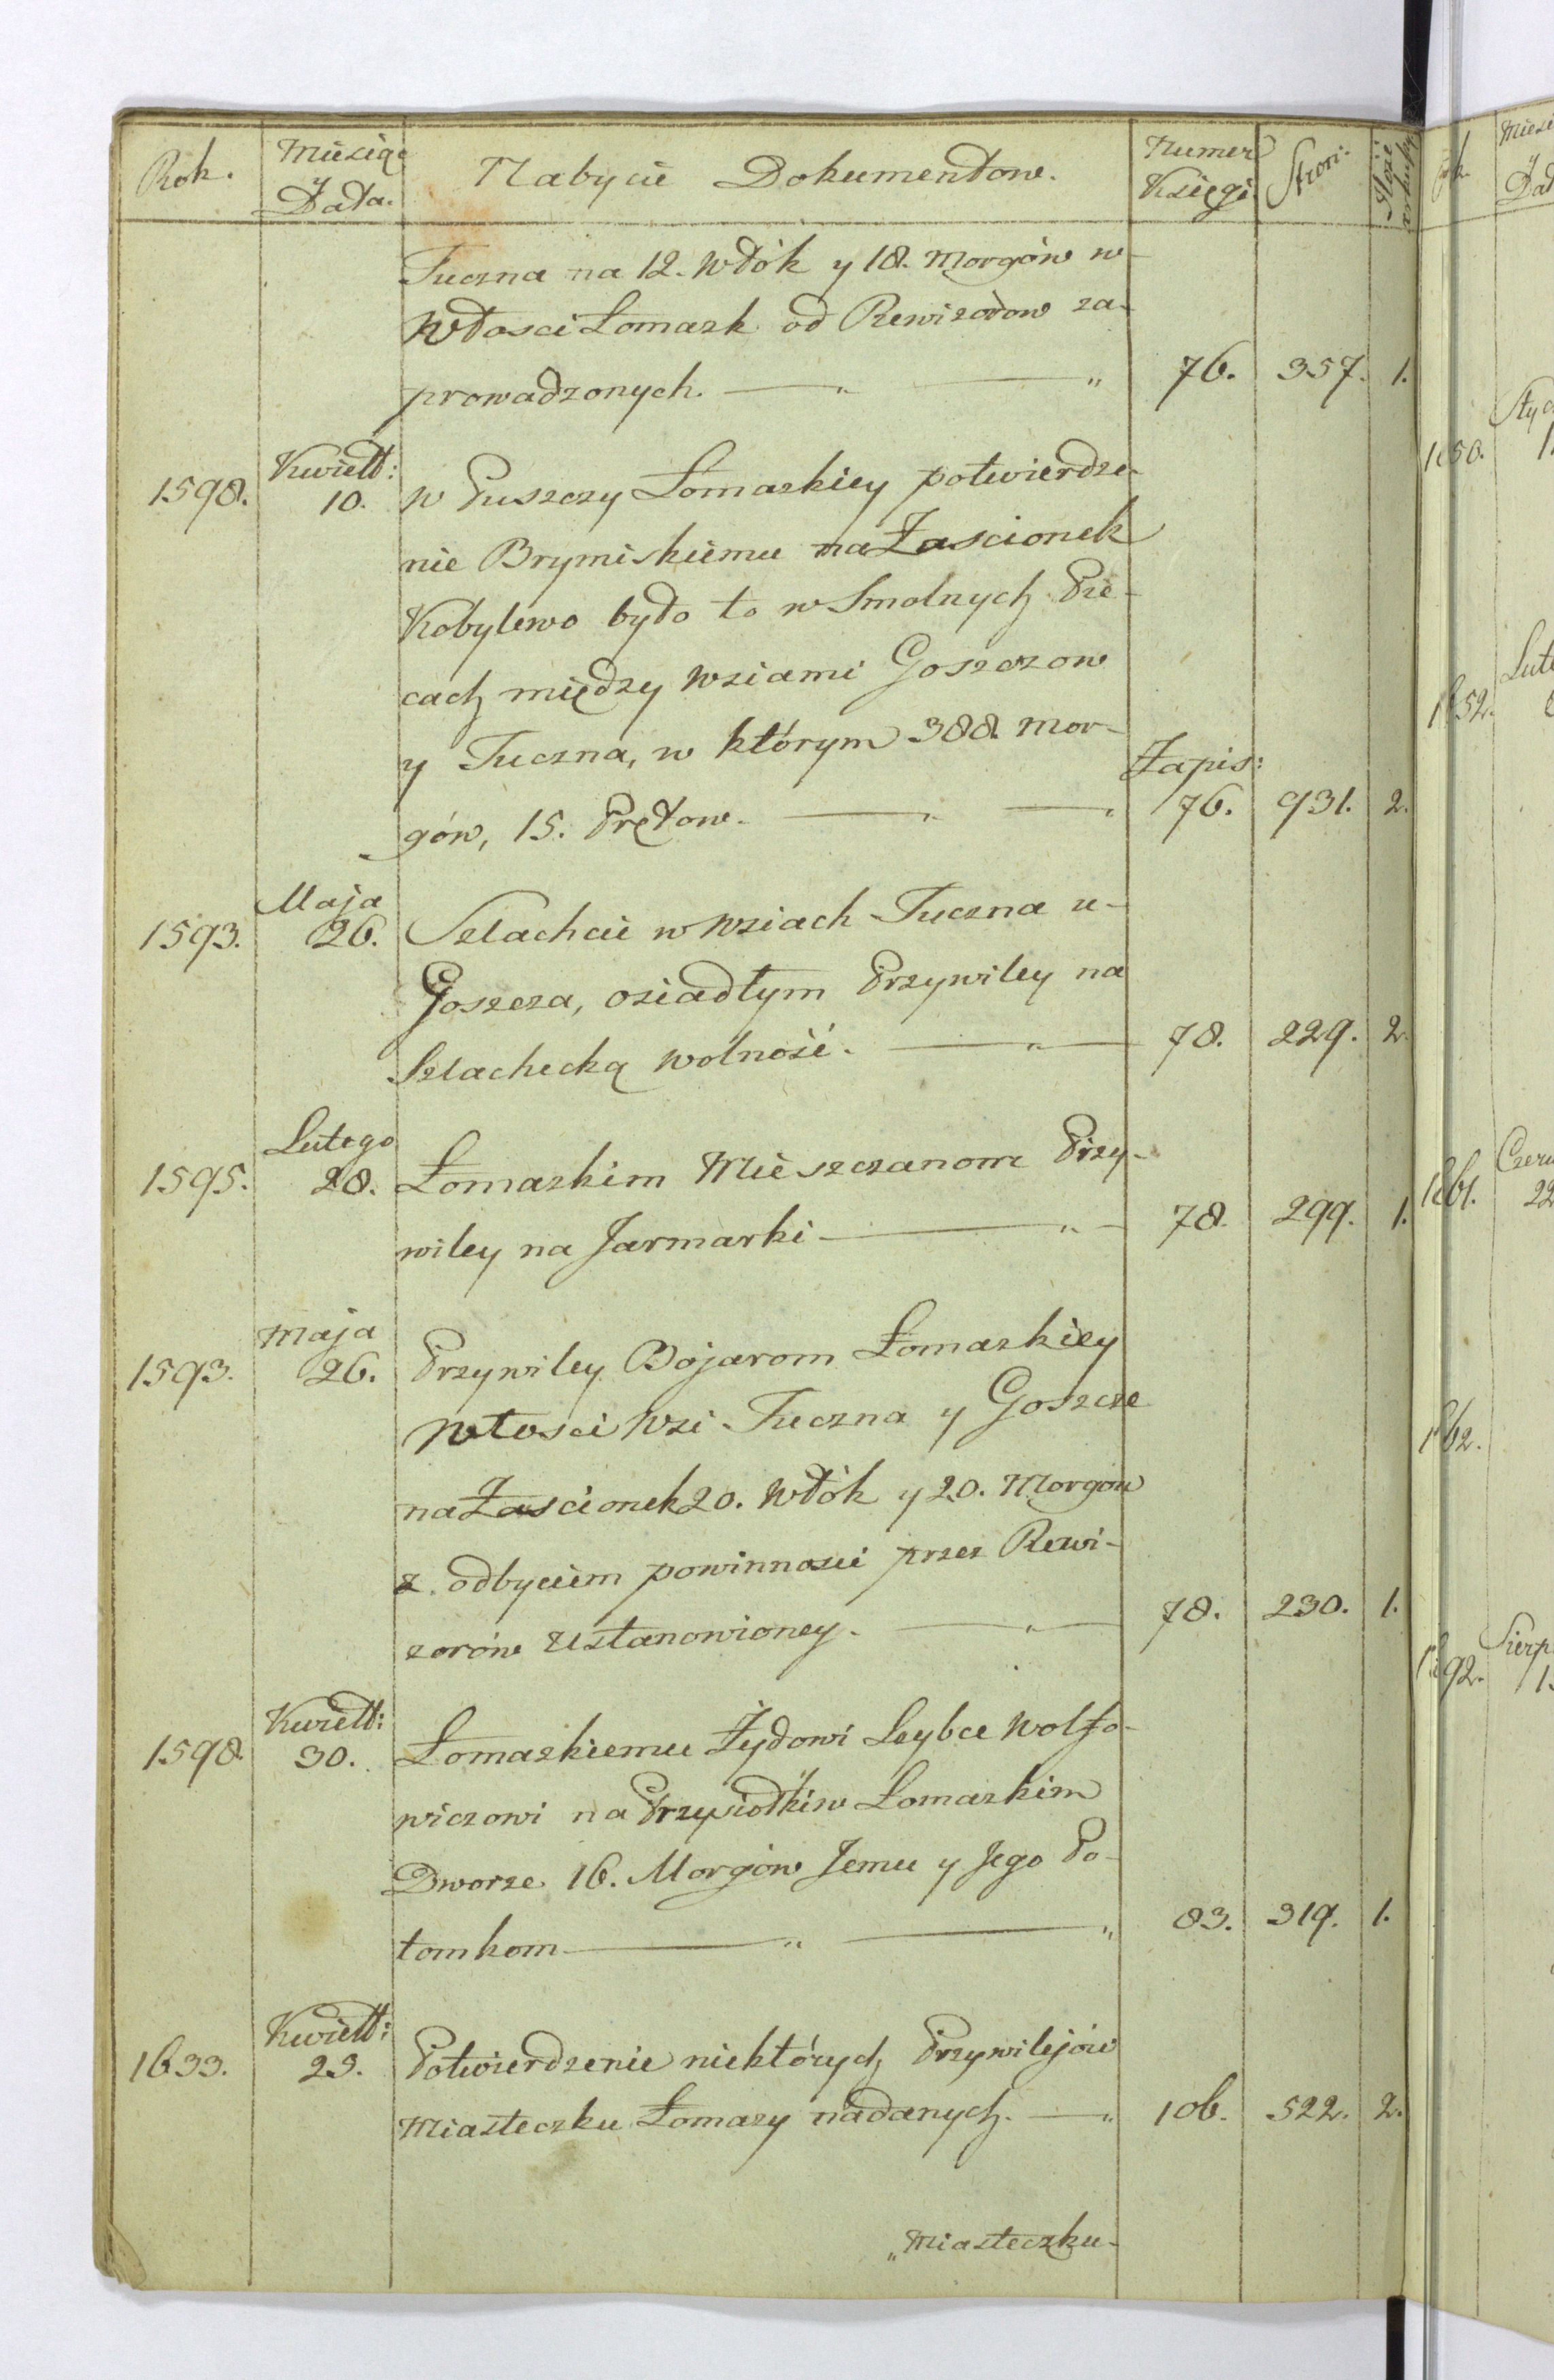 Rok. Miesiąc y Data. Nabycie Dokumentow. Numer Księgi Stron:
Tuczna na 12. Włók y 18. Morgów w
Włosci Łomazk od Rewizorow za-
prowadzonych. 76. 357. 1.
Kwiett:
1598. 10. w Puszczy Łomazkiey potwierdze-
nie Brymiskiemu na Zascionek
Kobylewo było to w Smolnych Pie-
cach między wsiami Goszczow
y Tuczna, w którym 388 mor-
Zapis:
gów, 15. Prętow. 76. 931. 2.
Maja
1593. 26. Szlachcie w Wsiach Tuczna u-
Goszcza, osiadłym Przywiley na
Szlachecką wolność. 78. 229. 2.
Lutego
1595. 28. Łomazkim Mieszczanom Przy-
wiley na Jarmarki 78. 299. 1.
Maja
1593. 26. Przywiley Bojarom Łomazkiey
Włosci Wsi Tuczna y Goszcze
na Zascionek 20. Włók y 20. Morgow
z odbyciem powinnosci przez Rewi-
zorów Ustanowioney. 78. 230. 1.
Kwiett:
1598. 30. Łomazkiemu Żydowi Leybce Wolfo-
wiczowi na Przysiołkiw Łomazkim
Dworze 16. Morgów Jemu y Jego Po-
tomkom 83. 319. 1.
Kwiett:
1633. 23. Potwierdzenie niektórych Przywilejów
Miasteczku Łomazy nadanych. 106. 522. 2.
„Miasteczku-